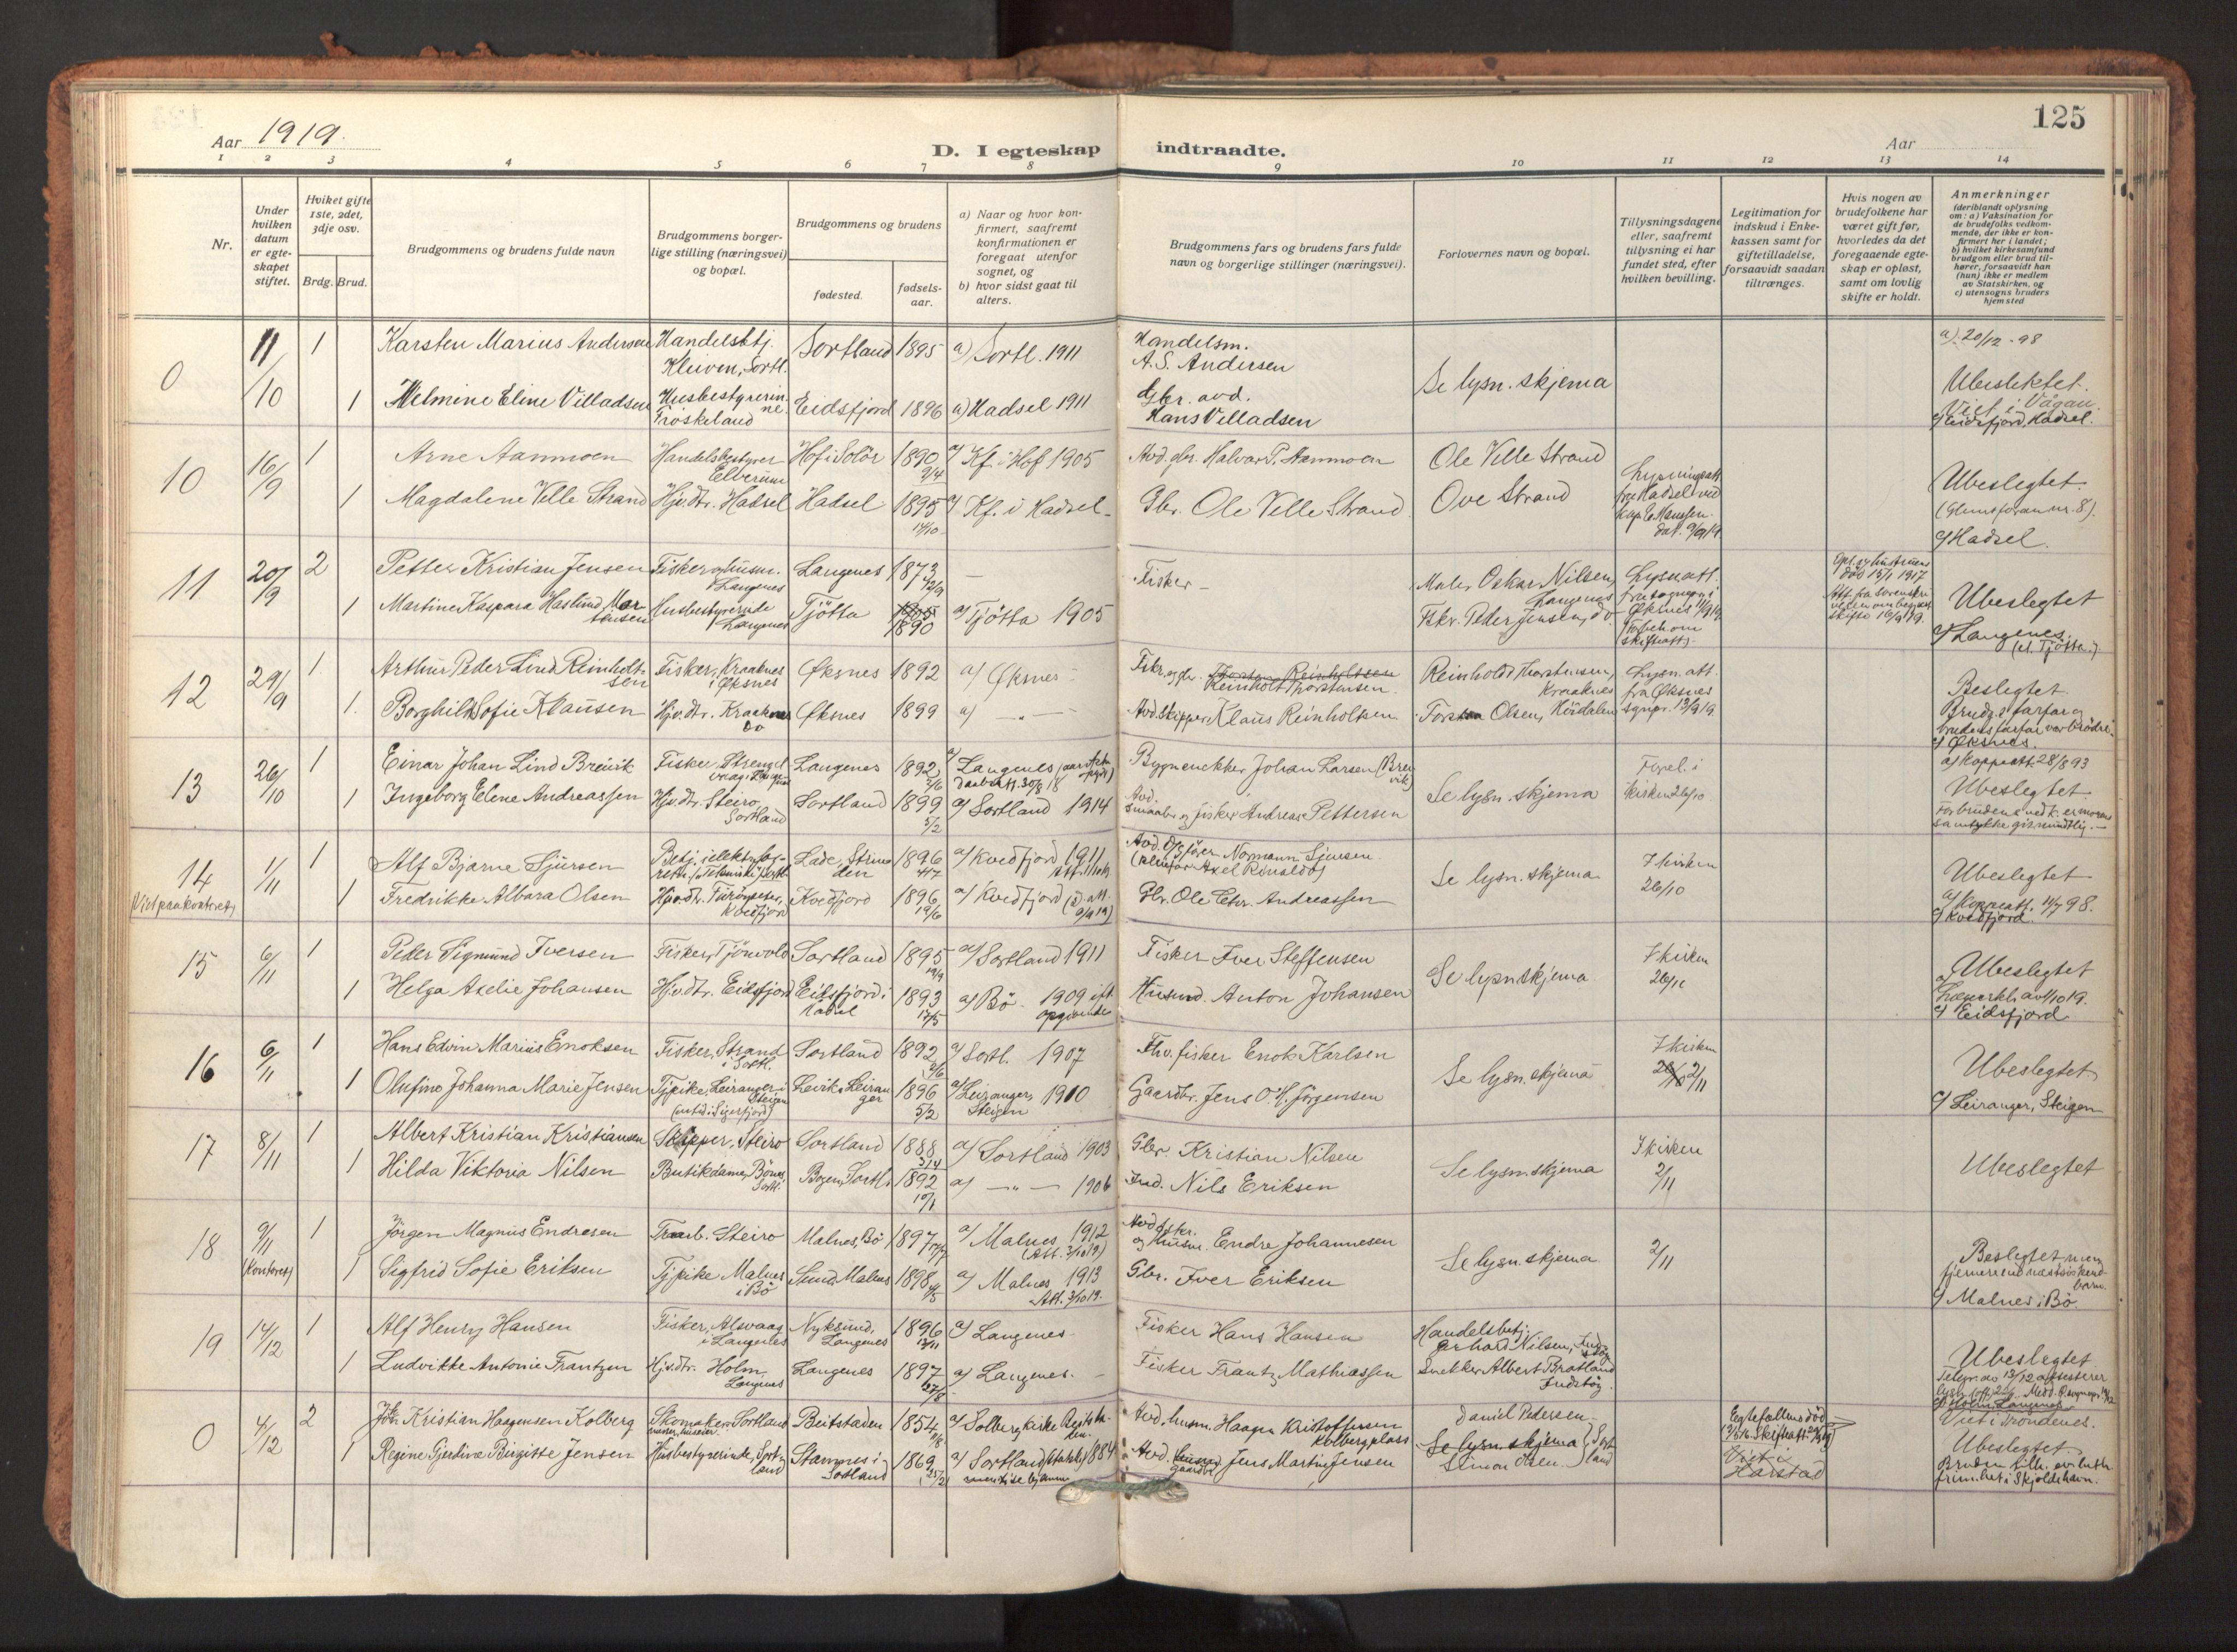 125
Aar 1919.
D. I egteskap indtraadte.
Aar
1 2 3 4 5 6 7 8 9 10 11 12 13 14
Nr.
Under hvilken datum er egte-skapet stiftet.
Hviket gifte 1ste, 2det, 3dje osv.
Brdg. Brud.
Brudgommens og brudens fulde navn
Brudgommens borger-lige stilling (næringsvei) og bopæl.
Brudgommens og brudens
fødested.
fødsels-aar.
a) Naar og hvor kon-firmert, saafremt konfirmationen er foregaat utenfor sognet, og
b) hvor sidst gaat til alters.
Brudgommens fars og brudens fars fulde navn og borgerlige stillinger (næringsvei).
Forlovernes navn og bopæl.
Tillysningsdagene eller, saafremt tillysning ei har fundet sted, efter hvilken bevilling.
Legitimation for indskud i Enke-kassen samt for giftetilladelse, forsaavidt saadan tiltrænges.
Hvis nogen av brudefolkene har været gift før, hvorledes da det foregaaende egte-skap er opløst, samt om lovlig skifte er holdt.
Anmerkninger (deriblandt oplysning om: a) Vaksination for de brudefolks vedkom-mende, der ikke er kon-firmert her i landet; b) hvilket kirkesamfund brudgom eller brud til-hører, forsaavidt han (hun) ikke er medlem av Statskirken, og c) utensogns bruders hjemsted
0 11/10 1 Karsten Marius Andersen Handelsbtj. Kleiven, Sortl. Sortland 1895 a) Sortl. 1911 Handelsm. A.S. Andersen Se lysn. skjema a) 20/12-98
1 Helmine Eline Villadsen Husbestyrerin-ne Frøskeland Eidsfjord 1896 a) Hadsel 1911 Gbr. avd. Hans Villadsen Ubeslektet. Viet i Vågan. c/ Eidsfjord, Hadsel.
10 16/9 1 Arne Aamoen Handelsbestyrer Elverum Hof i Solör 1890 9/4 a/ Kf. i Hof 1905 Avd. gbr. Halvor P. Aamoen Ole Velle Strand
1 Magdalene Velle Strand Hjv.dtr. Hadsel Hadsel 1895 14/10 a/ Kf. i Hadsel Gbr. Ole Velle Strand Ove Strand Lysningsatt. fra Hadsel ved kap. E. Hanssen dat. 9/9 19 Ubeslegtet. c/ Hadsel.
11 20/9 2 Petter Kristian Jensen Fisker og husm. Langenes Langenes 1873 Fisker - Maler Oskar Nilsen, Langenes
1 Martine Kaspara Haslund Mortensen Husbestyrerinde Langenes Tjötta 1890 a/ Tjötta 1905 Fskr. Peder Jensen, do. Lysn.att. fra sognepr i Øksnes 11/9 19 Ubeslegtet c/ Langenes
12 29/9 1 Arthur Peder Lind Reinholt-sen Fisker, Kraaknes i Øksnes Øksnes 1892 a/ Øksnes Fskr. og gbr. Reinholt Thorstensen. Reinholdt Thorstensen, Kraaknes Lysn. att. fra Øksnes sognpr. 13/9 19
1. Borghild Sofie Klausen Hjv.dtr. Kraaknes do Øksnes 1899 a/ — „ — Avd. Skipper Klaus Reinholtsen Torsten Olsen, Höidalen Beslegtet. Brudg.s farfar og brudens farfar var brödre. c/ Øksnes.
13 26/10 1 Einar Johan Lind Breivik Fisker, Strengel-vaag Langenes 1892 2/6 a/ Langenes Bygnsnekker Johan Larsen (Brei-vik) Se lysn. skjema I kirken 26/10 a/ Koppeatt. 28/8 93
1 Ingeborg Elene Andreassen Hjv.dtr. Steiro, Sortland Sortland 1899 5/2 a/ Sortland 1914 Avd. smaabr. og fisker Andreas Pettersen Ubeslegtet
14 (Viet paa kontoret) 1/11 1 Alf Bjarne Sjursen Lade, Strin-den 1896 a/ Kvedfjord 1911 Normann Sjursen Se lysn. skjema I kirken 26/10 Ubeslegtet
1 Fredrikke Albara Olsen Kvedfjord 1896 19/6 a/ Kvedfjord Gbr. Ole Chr. Andreassen a/ Koppeatt. 4/7 98. c/ Kvedfjord
15 6/11 1 Peder Sigmund Iversen Fisker, Tjörvold Sortland 1895 19/9 a/ Sortland 1911 Fisker Iver Steffensen Se lysn. skjema I kirken 26/10
1 Helga Axelie Johansen Hjv.dtr. Eidsfjord Eidsfjord i Hadsel 1893 17/5 a/ Bö 1909 ift. opgivende Husmd. Anton Johansen Ubeslegtet c/ Eidsfjord
16 6/11 1 Hans Edvin Marius Enoksen Fisker, Strand i Sortl. Sortland 1892 2/6 a/ Sortl. 1907 Fhv. fisker Enok Karlsen Se lysn. skjema I kirken 2/11 Ubeslegtet
1 Olufine Johanna Marie Jensen Tjpike, Leiranger i Steigen Levik, Leiran-ger 1896 5/2 a/ Leiranger, Steigen 1910 Gaardbr. Jens O. H. Jörgensen c/ Leiranger, Steigen
17 8/11 1 Albert Kristian Kristiansen Skipper, Steiro Sortland 1888 a/ Sortland 1903 Gbr. Kristian Nilsen Se lysn. skjema I kirken 2/11 Ubeslegtet
1 Hilda Viktoria Nilsen Butikdame, Bönes, Sortl. Bogen, Sortl. 1892 10/1 a/ — „ — 1906 Nils Eriksen
18 9/11 (Kontoret) 1 Jörgen Magnus Endresen Steiro Malnes, Bö 1897 a/ Malnes 1912 (Att. 3/10 19) Avd. fskr. og husm. Endre Johannesen Se lysn. skjema 2/11
1 Sigfrid Sofie Eriksen Tjpike Malnes i Bö Sund Malnes 1898 a/ Malnes 1913 Att. 3/10 19. Gbr. Iver Eriksen Beslegtet, men fjernere end næstsöskend-barn. c/ Malnes i Bö
19 14/12 1 Alf Henry Hansen Fisker, Alsvaag i Langenes Nyksund, Langenes 1896 13/11 a/ Langenes Fisker Hans Hansen Handelsbetj. Gerhard Nilsen,
1 Ludvikke Antonie Frantzen Hjv.dtr. Holm Langenes Langenes 1897 27/8 a/ Langenes. Fisker Frantz Mathiassen Snekker Albert Bratland Ubeslegtet c/ Holm, Langenes
0 4/12 2 Joh. Kristian Haagensen Kolberg Skomaker, Sortland Beitstaden 1854 a/ Solberg kirke Beitsta-den Avd. husm. Haagen Kristoffersen Kolbergplass Daniel Pedersen Egtefællens död Viet i Trondenes.
1 Regine Gjertine Birgitte Jensen Husbestyrerinde, Sort-land Stamnes i Sortland 1869 25/2 a/ Sortland 1884 Avd. gaardbr. Jens Martin Jensen Se lysn. skjema Simon Olsen Sort-land Viet i Harstad Ubeslegtet. Bruden tilh. ev. luth. frimenh. i Skjoldehavn.